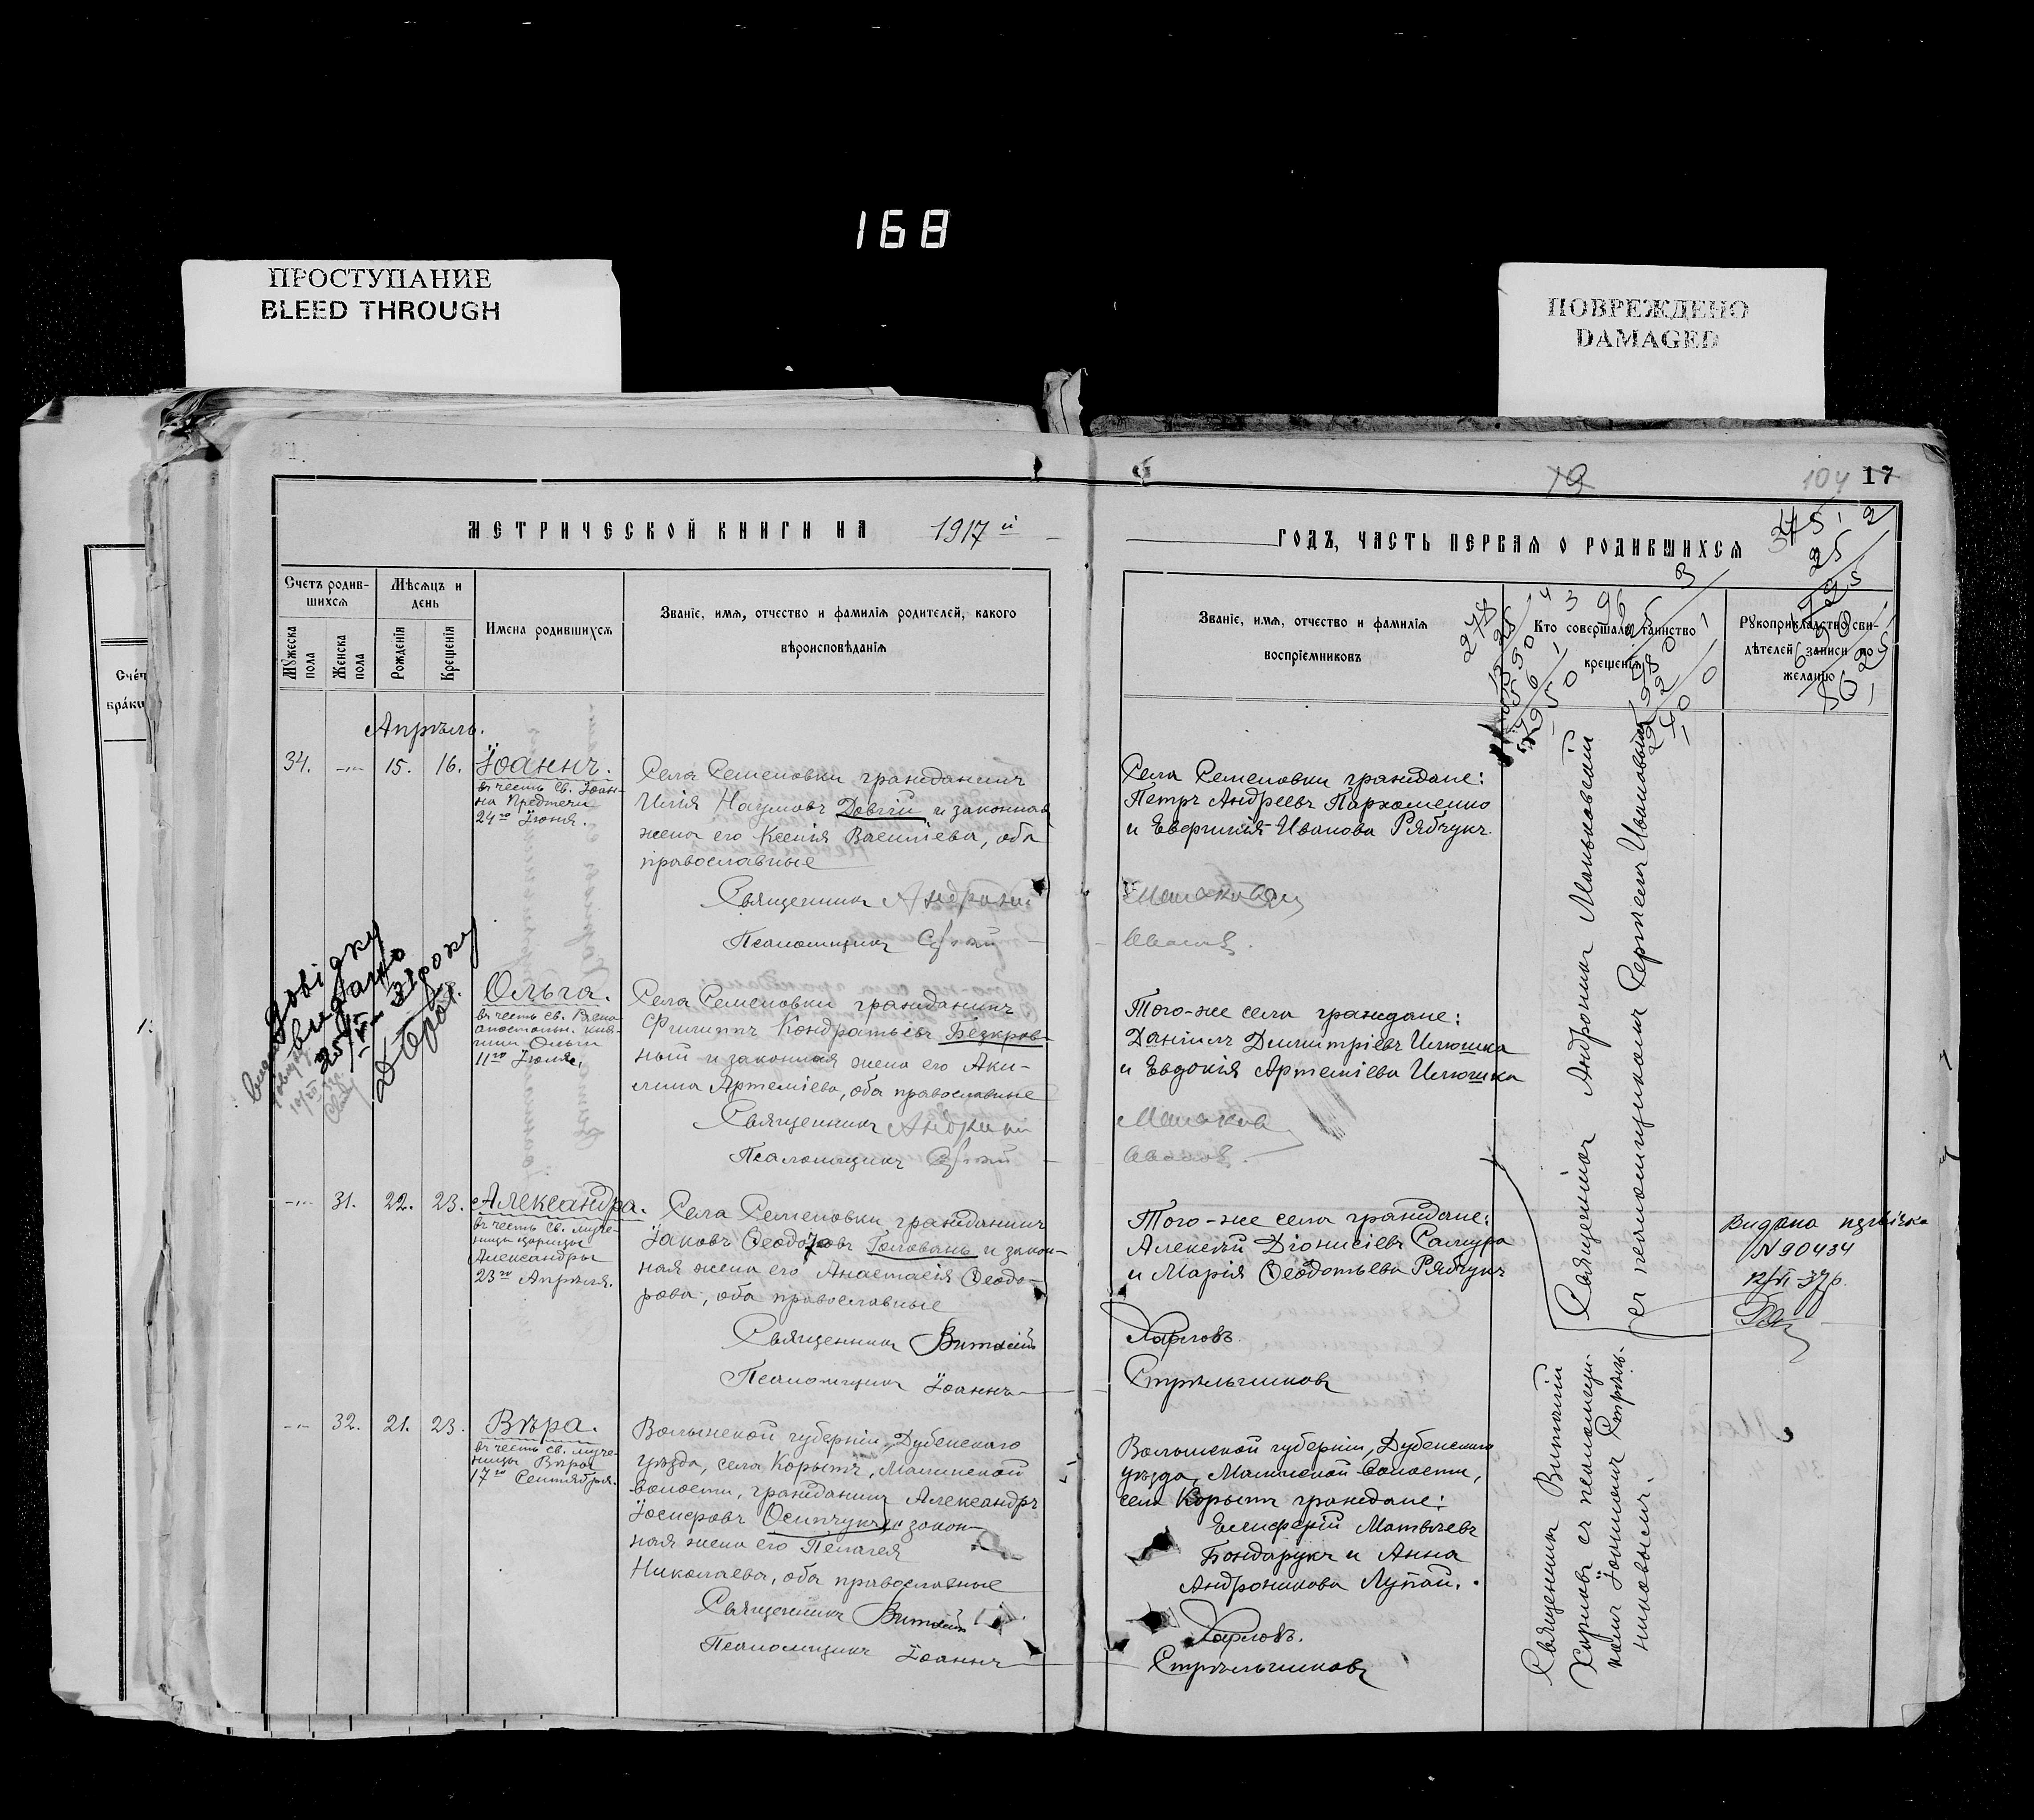 168
ПРОСТУПАНИЕ
BLEED THROUGH
ПОВРЕЖДЕНО
DAMAGED
19
104 17
МЕТРИЧЕСКОЙ КНИГИ НА 1917й
ГОДЪ, ЧАСТЬ ПЕРВАЯ О РОДИВШИХСЯ
Счетъ родив-
шихся
Мѣсяцъ и
день
Мужеска
пола
Женска
пола
Рожденія
Крещенія
Имена родившихся
Званіе, имя, отчество и фамилія родителей, какого
вѣроисповѣданія
Званіе, имя, отчество и фамилія
воспріемниковъ
Кто совершалъ таинство
крещенія
Рукоприкладство сви-
дѣтелей записи по
желанію
Апрѣль.
34. 15. 16. Іоаннъ.
въ честь Св. Іоан-
на Предтечи
24го Іюня.
Села Семеновки гражданинъ
Илія Наумовъ Довгій и законная
жена его Ксенія Василіева, оба
православные
Священникъ Андроникъ
Псаломщикъ Сергѣй
Села Семеновки граждане:
Петръ Андреевъ Пархоменко
и Евфимія Иванова Рябчукъ.
довідку
видано
Ольга.
въ честь Св. Равно-
апостольн. кня-
гини Ольги
11го Іюля.
Села Семеновки гражданинъ
Филиппъ Кондратьевъ Безкров-
ный и законная жена его Аки-
лина Артеміева, оба православные
Священникъ Андроникъ
Псаломщикъ Сергѣй
Того-же села граждане:
Даніилъ Димитріевъ Илюшка
и Евдокія Артеміева Илюшка
31. 22. 23. Александра.
въ честь Св. муче-
ницы царицы
Александры
23го Апрѣля.
Села Семеновки гражданинъ
Іаковъ Ѳеодоровъ Головань и закон-
ная жена его Анастасія Ѳеодо-
рова, оба православные
Священникъ Виталій
Псаломщикъ Іоаннъ
Того-же села граждане:
Алексѣй Діонисіевъ Самура
и Марія Ѳеодотьева Рябчукъ
Карповъ.
Стрѣльниковъ
Видана
N 90434
12/VI-37р.
32. 21. 23. Вѣра.
въ честь Св. муче-
ницы Вѣры
17го Сентября.
Волынской губерніи, Дубенскаго
уѣзда, села Корытъ, Малинской
волости, гражданинъ Александръ
Іосифовъ Осипчукъ и закон-
ная жена его Пелагея
Николаева, оба православные
Священникъ Виталій
Псаломщикъ Іоаннъ
Волынской губерніи, Дубенскаго
уѣзда, Малинской волости,
села Корытъ граждане:
Елисферій Матвѣевъ
Бондарукъ и Анна
Андроникова Лупай.
Карповъ.
Стрѣльниковъ
Священникъ Андроникъ Маньковскій
съ псаломщикомъ Сергѣемъ Ивановымъ
Священникъ Виталій
Карповъ съ псаломщи-
комъ Іоанномъ Стрѣль-
никовымъ.